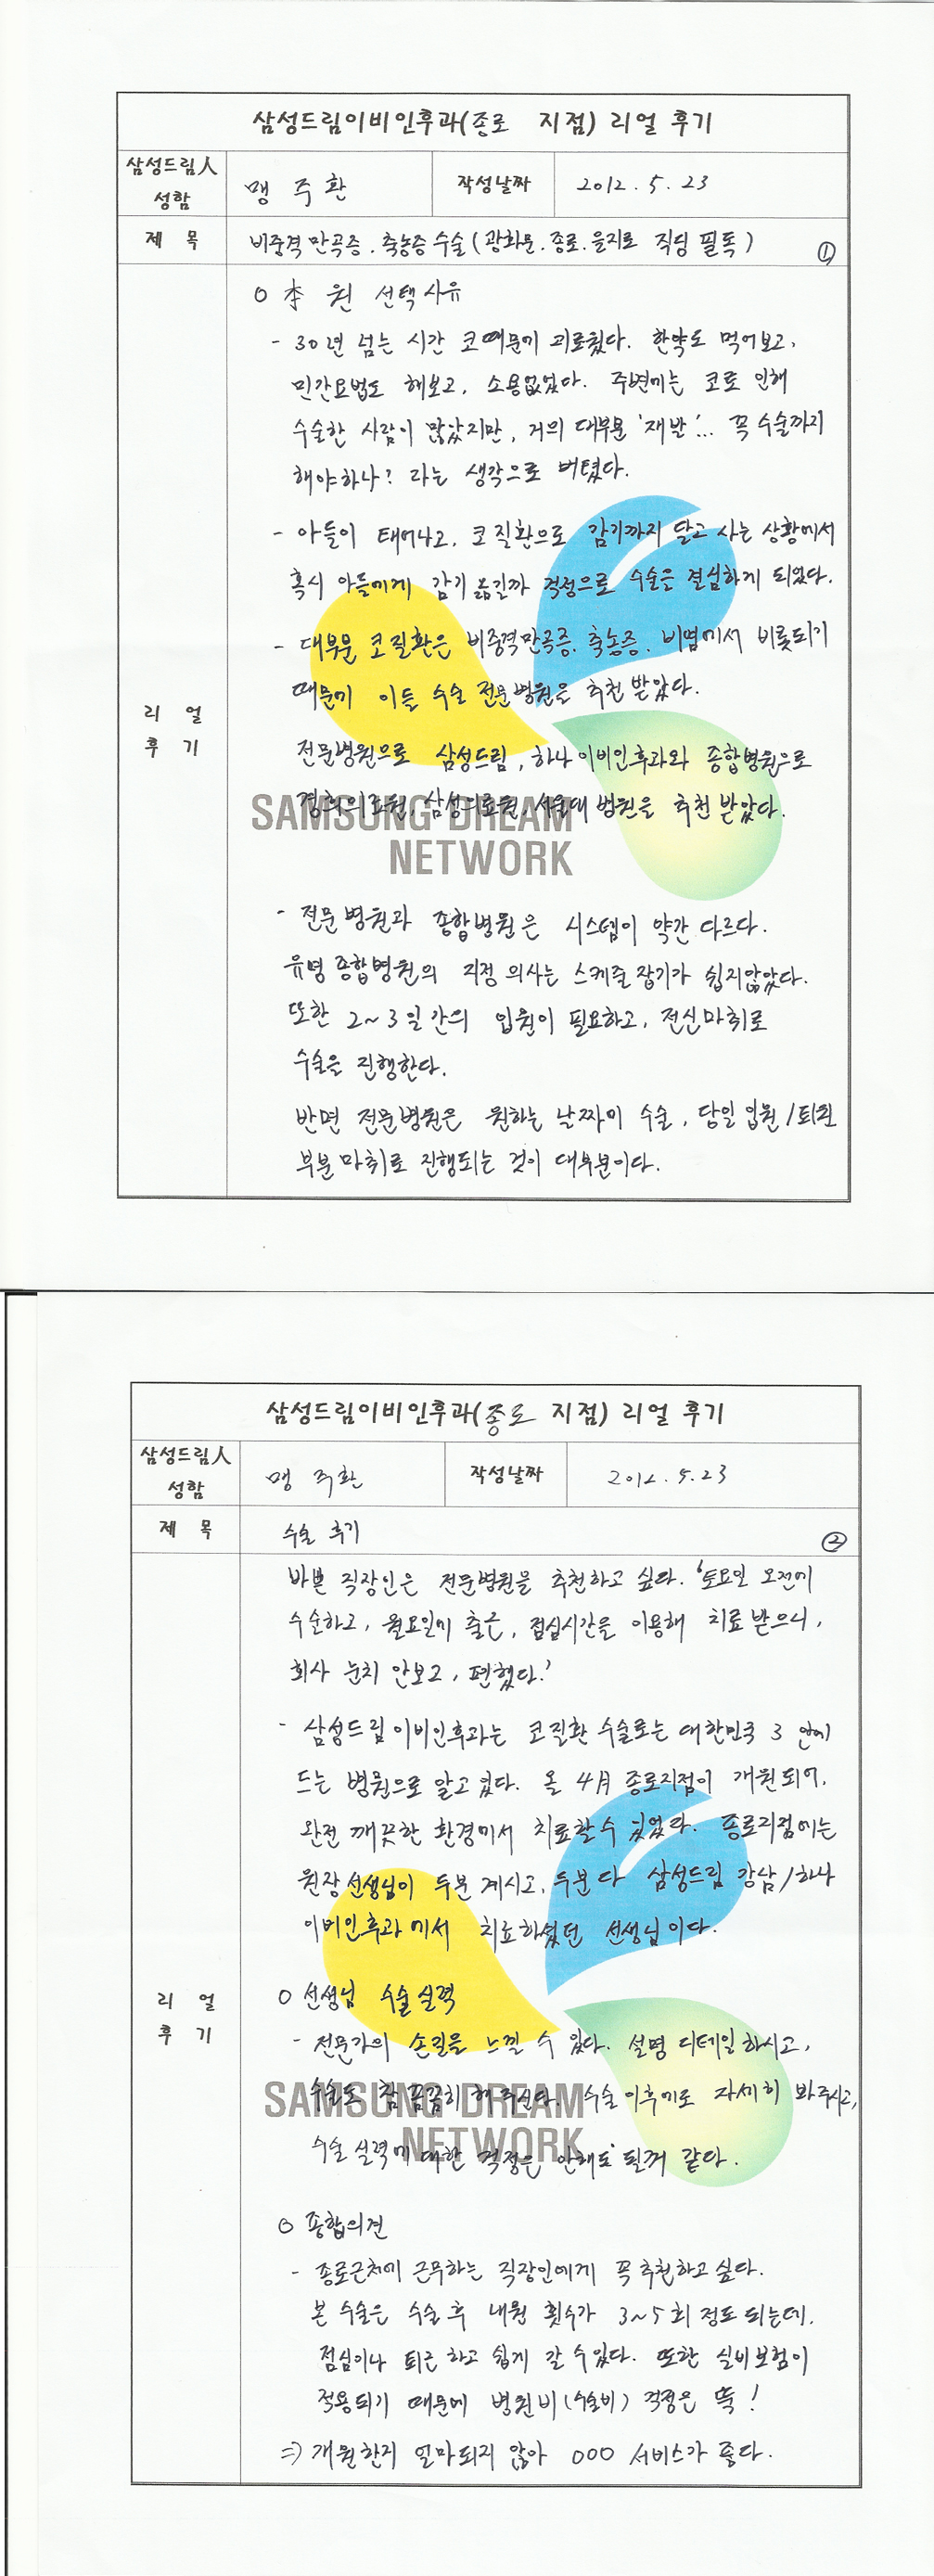 삼성드림이비인후과(종로 지점) 리얼 후기
삼성드림人 성함
맹 주 환
작성날짜
2012. 5. 23
제 목
비중격만곡증. 축농증 수술 (광화문. 종로. 을지로 직딩 필독)
①
리 얼 후 기
○ 本 원 선택사유
- 30년 넘는 시간 코때문에 괴로웠다. 한약도 먹어보고,
민간요법도 해보고, 소용없었다. 주변에는 코로 인해
수술한 사람이 많았지만, 거의 대부분 '재발'... 꼭 수술까지
해야하나? 라는 생각으로 버텼다.
- 아들이 태어나고, 코질환으로 감기까지 달고 사는 상황에서
혹시 아들에게 감기 옮길까 걱정으로 수술을 결심하게 되었다.
- 대부분 코질환은 비중격만곡증. 축농증. 비염에서 비롯되기
때문에 이들 수술 전문병원을 추천 받았다.
전문병원으로 삼성드림, 하나이비인후과와 종합병원으로
경희의료원, 삼성의료원, 서울대 병원을 추천 받았다.
SAMSUNG DREAM
NETWORK
- 전문병원과 종합병원은 시스템이 약간 다르다.
유명 종합병원의 지정 의사는 스케줄 잡기가 쉽지않았다.
또한 2~3일간의 입원이 필요하고, 전신마취로
수술을 진행한다.
반면 전문병원은 원하는 날짜에 수술, 당일 입원/퇴원
부분마취로 진행되는 것이 대부분이다.
삼성드림이비인후과(종로 지점) 리얼 후기
삼성드림人 성함
맹 주환
작성날짜
2012. 5. 23
제 목
수술 후기
②
리 얼 후 기
바쁜 직장인은 전문병원을 추천하고 싶다. '토요일 오전에
수술하고, 월요일에 출근, 점심시간을 이용해 치료 받으니,
회사 눈치 안보고, 편했다.'
- 삼성드림이비인후과는 코질환 수술로는 대한민국 3 안에
드는 병원으로 알고 있다. 올 4月 종로지점이 개원되어,
완전 깨끗한 환경에서 치료할수 있었다. 종로지점에는
원장선생님이 두분 계시고, 두분 다 삼성드림 강남/하나
이비인후과에서 치료하셨던 선생님이다.
○ 선생님 수술 실력
- 전문가의 손길을 느낄 수 있다. 설명 디테일하시고,
수술도 참 꼼꼼히 해주신다. 수술 이후에도 자세히 봐주시고,
수술 실력에 대한 걱정은 안해도 될꺼 같다.
SAMSUNG DREAM
NETWORK
○ 종합의견
- 종로근처에 근무하는 직장인에게 꼭 추천하고 싶다.
본 수술은 수술 후 내원 횟수가 3~5회 정도 되는데,
점심이나 퇴근 하고 쉽게 갈 수 있다. 또한 실비보험이
적용되기 때문에 병원비(수술비) 걱정은 뚝!
⇒ 개원한지 얼마되지 않아 ㅇㅇㅇ 서비스가 좋다.